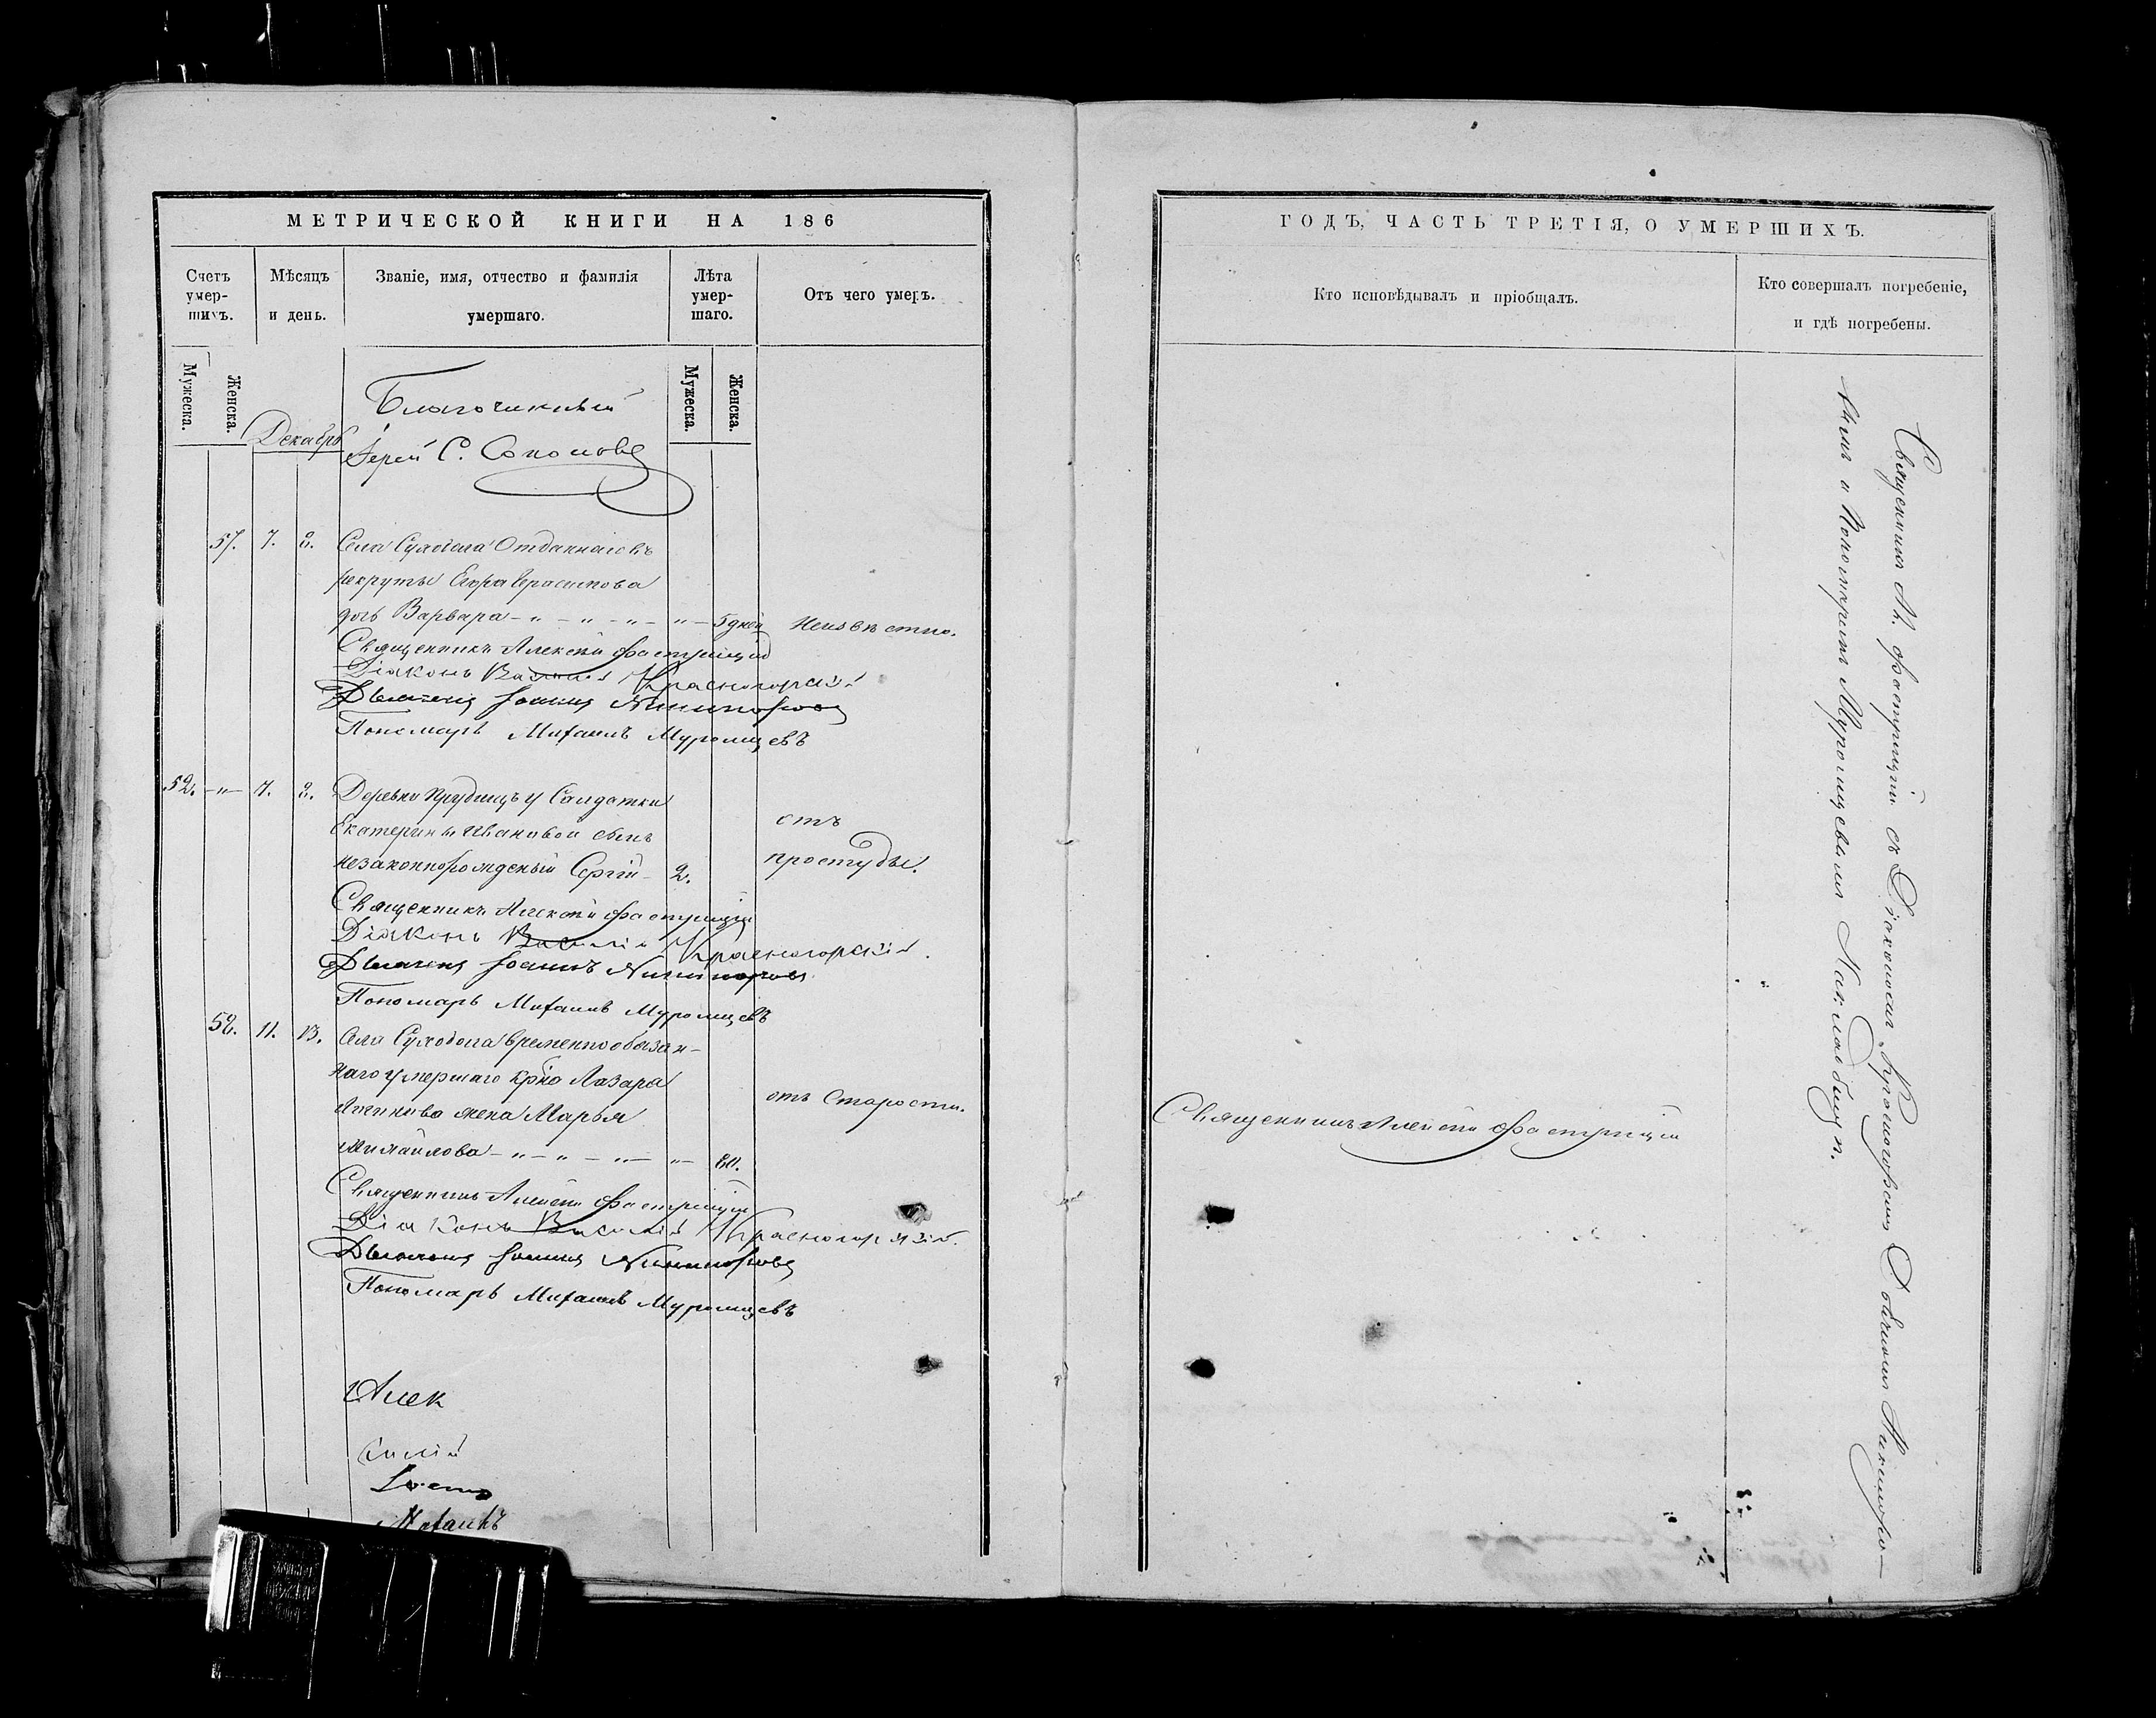 МЕТРИЧЕСКОЙ КНИГИ НА 186
Счетъ умер-шихъ.
Мѣсяцъ и день.
Званіе, имя, отчество и фамилія умершаго.
Лѣта умер-шаго.
Отъ чего умеръ.
Мужеска.
Женска.
Мужеска.
Женска.
Декабрь
Благочинный
Іерей С. Соколовъ
57. 7. 8. Села Суходола Отданнаго въ
рекруты Егора Герасимова
дочь Варвара - " - " - " - " - 5 дней Неизвѣстно.
Священникъ Алексѣй Фастрицкій
Діаконъ Василій Красногорскій
Дьячекъ Іоаннъ Никифоровъ
Пономарь Михаилъ Муромцевъ
52. - " - 7. 8. Деревни Прудищъ у Солдатки
Екатерины Ивановой сынъ
незаконнорожденый Сергій - 2.
отъ
простуды.
Священникъ Алексѣй Фастрицкій
Діаконъ Василій Красногорскій.
Дьячекъ Іоаннъ Никифоровъ
Пономарь Михаилъ Муромцевъ
58. 11. 13. Села Суходола временно обязан-
наго умершаго крѣно Лазаря
жена Марья
Михайлова - " - " - " - " - 80.
отъ Старости.
Священникъ Алексѣй Фастрицкій
Діаконъ Василій Красногорскій.
Дьячекъ Іоаннъ Никифоровъ
Пономарь Михаилъ Муромцевъ
Алек
силій
Іоаннъ
Михаилъ
ГОДЪ, ЧАСТЬ ТРЕТІЯ, О УМЕРШИХЪ.
Кто исповѣдывалъ и пріобщалъ.
Кто совершалъ погребеніе, и гдѣ погребены.
Священникъ Алексѣй Фастрицкій
Священникъ Ал. Фастрицкій съ Діакономъ Красногорскимъ Дьячкомъ Никифоро-
вымъ и Пономаремъ Муромцевымъ На кладбищѣ.